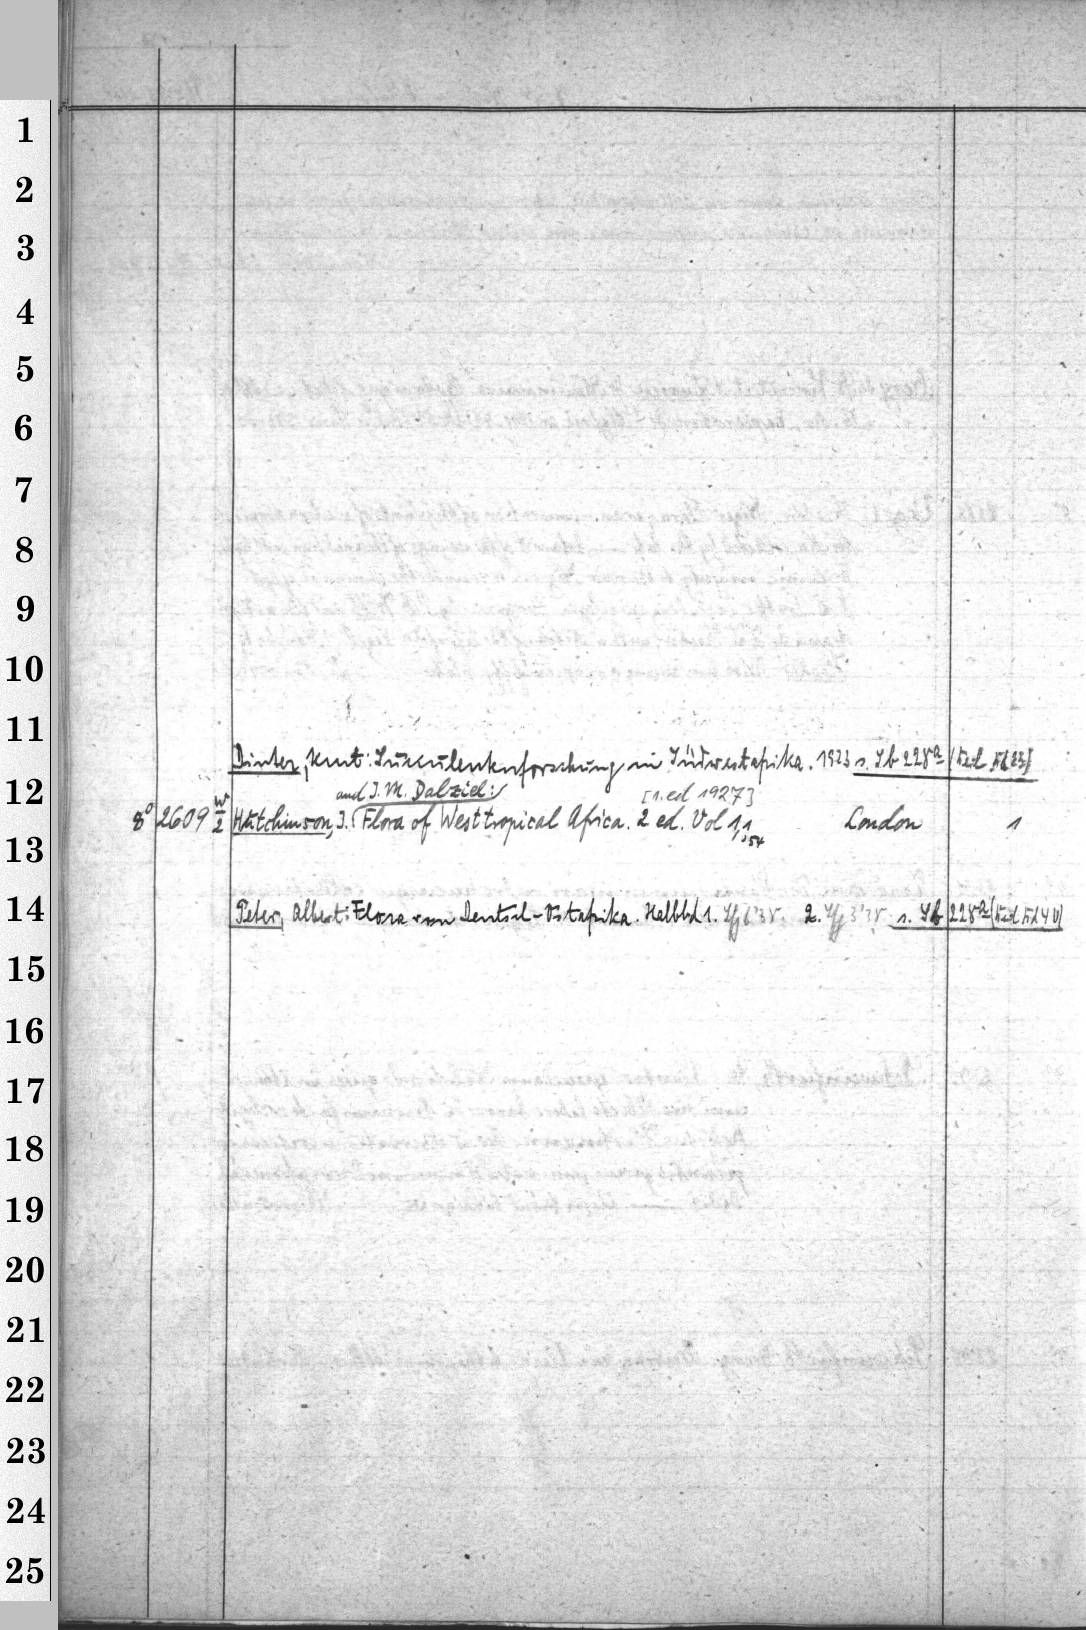 1
2
3
4
5
6
7
8
9
10
11
Dinter, Kurt: Sukkulentenforschung in Südwestafrika. 1923 s. Sb 228a
12
and J. M. Dalziel: [1. ed 1927]
8° 2609 w/2 Hutchinson, J. Flora of West tropical Africa. 2 ed. Vol 1,1. '54 London 1
13
14
Peter, Albert: Flora von Deutsch-Ostafrika. Halbbd 1. 2. s. Sb 228a
15
16
17
18
19
20
21
22
23
24
25